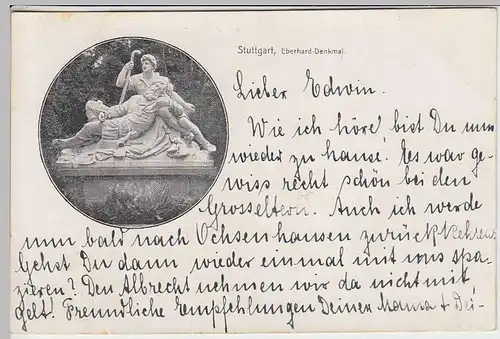 Stuttgart, Eberhard-Denkmal.
Lieber Edwin.
Wie ich höre, bist Du nun
wieder zu hause. Es war ge-
wiss recht schön bei den
Grosseltern. Auch ich werde
nun bald nach Ochsenhausen zurückkehren.
Gehst Du dann wieder einmal mit uns spa-
zieren? Den Albrecht nehmen wir da nicht mit
gelt. Freundliche Empfehlungen Deiner Mama + Dei-